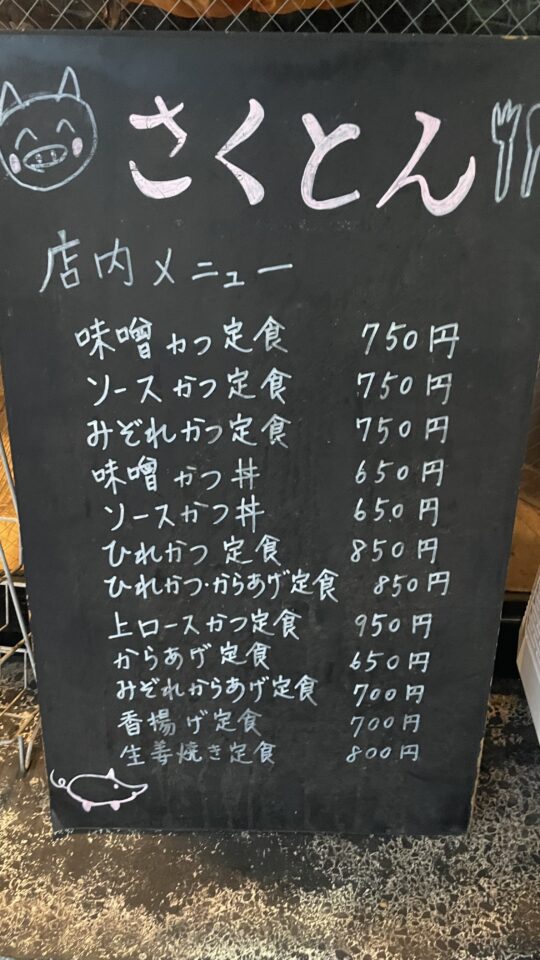 さくとん
店内メニュー
味噌かつ定食 750円
ソースかつ定食 750円
みぞれかつ定食 750円
味噌かつ丼 650円
ソースかつ丼 650円
ひれかつ定食 850円
ひれかつ・からあげ定食 850円
上ロースかつ定食 950円
からあげ定食 650円
みぞれからあげ定食 700円
香揚げ定食 700円
生姜焼き定食 800円